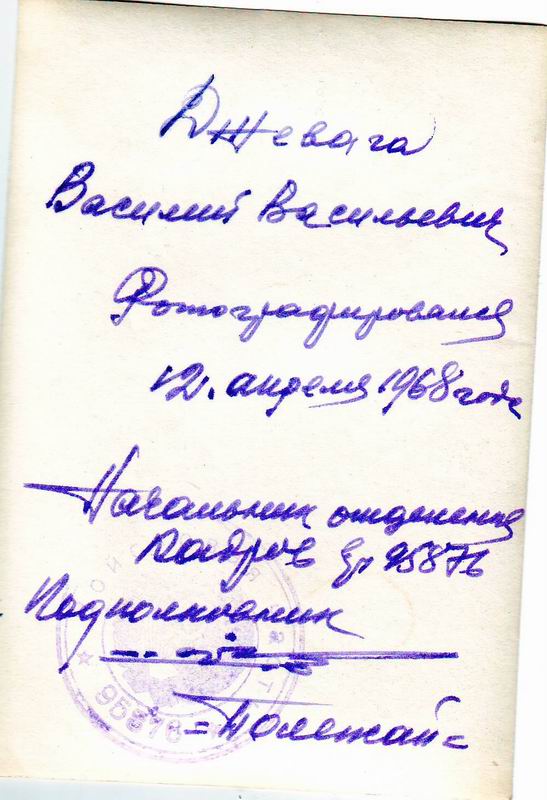 Джевага
Василий Васильевич
Фотографировался
12. апреля 1968 года
Начальник отделения
кадров 95876
Подполковник
=Полежай=